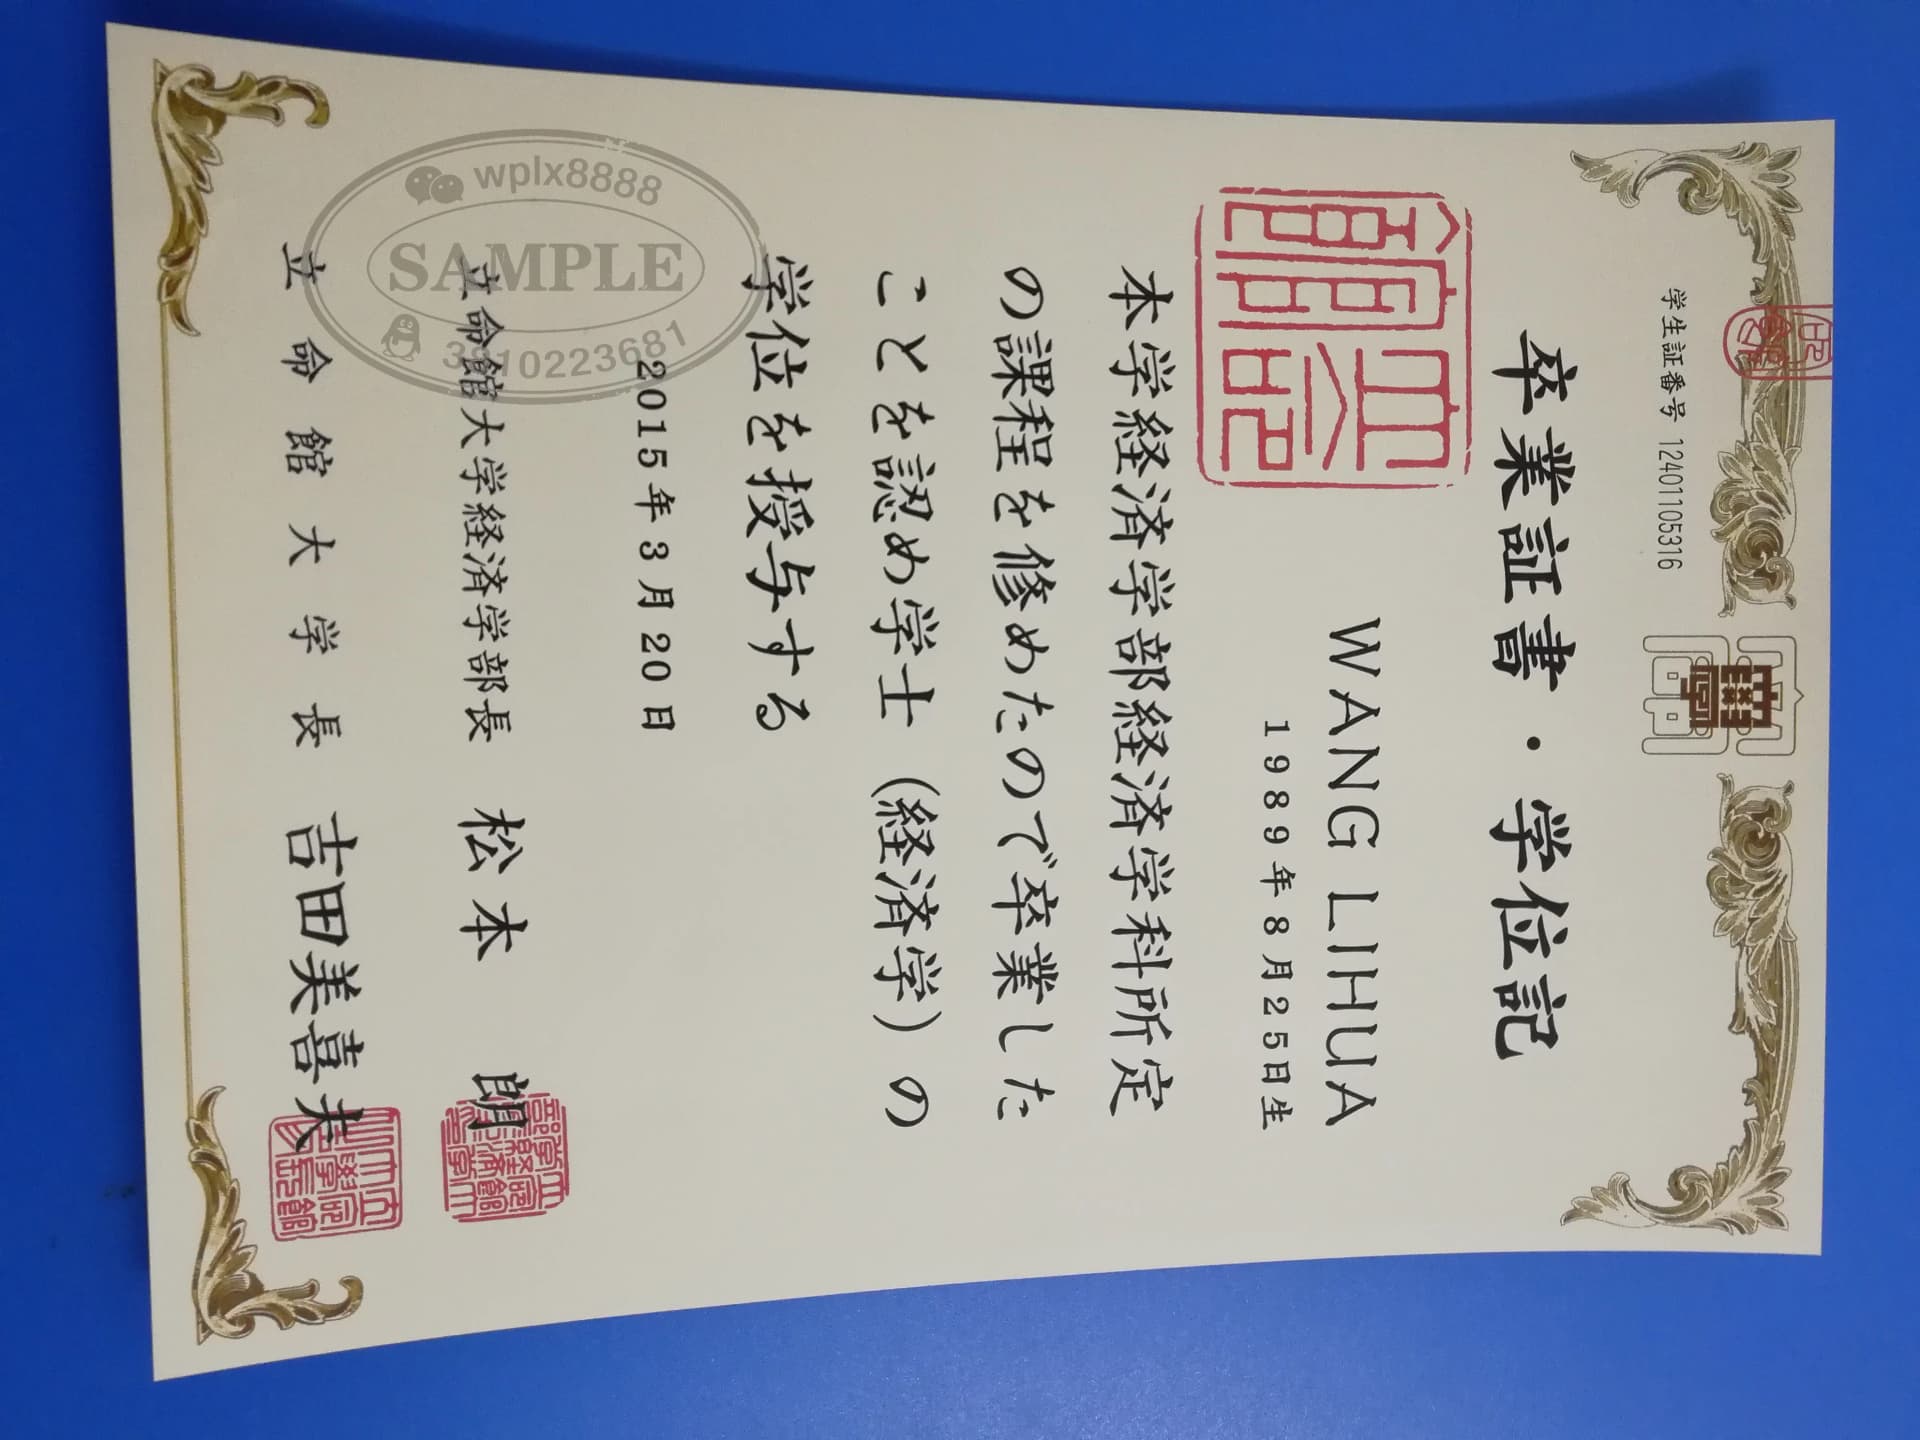 学生証番号 12401105316
卒業証書・学位記
WANG LIHUA
1989年8月25日生
本学経済学部経済学科所定
の課程を修めたので卒業した
ことを認め学士（経済学）の
学位を授与する
2015年3月20日
立命館大学経済学部長 松本 朗
立命館大学長 吉田美喜夫
wplx8888
SAMPLE
3910223681